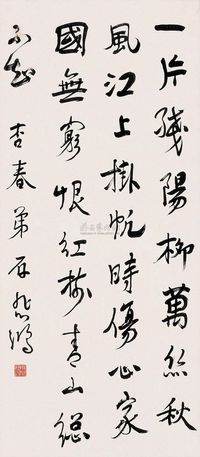 一片殘陽柳萬絲秋
風江上掛帆時傷心家
國無窮恨紅樹青山總
不知
杏春弟存 悲鴻